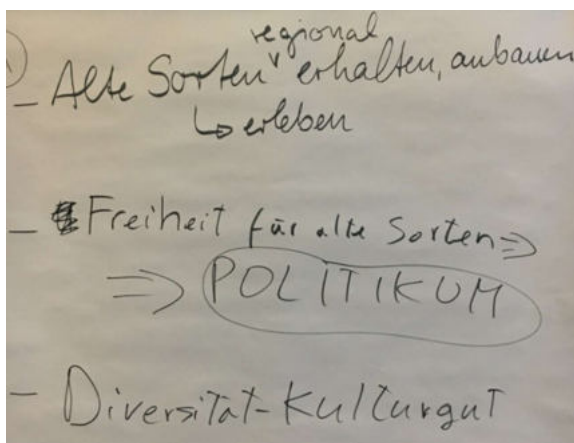 regional
- Alte Sorten erhalten, anbauen
↳ erleben
- Freiheit für alte Sorten ⇒
⇒ POLITIKUM
- Diversität-Kulturgut